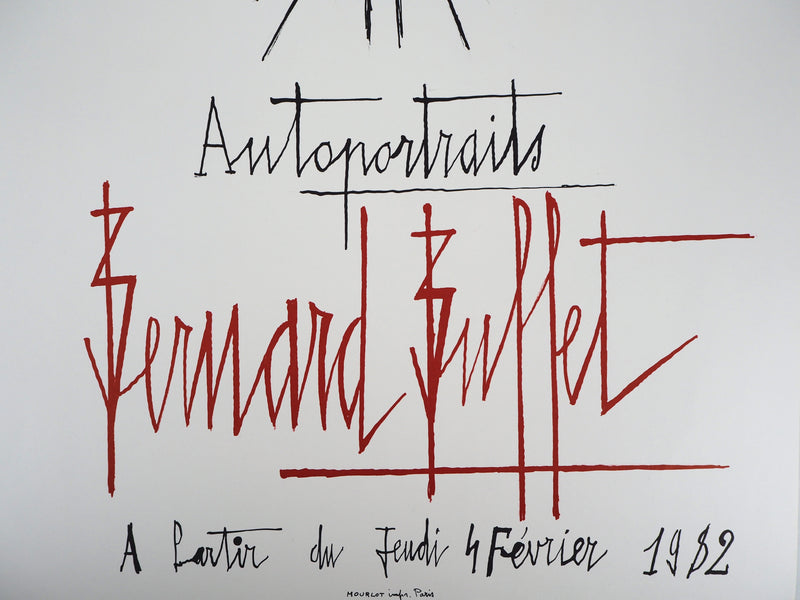 Autoportraits
Bernard Buffet
A Partir du Jeudi 4 Février 1982
MOURLOT impr. Paris